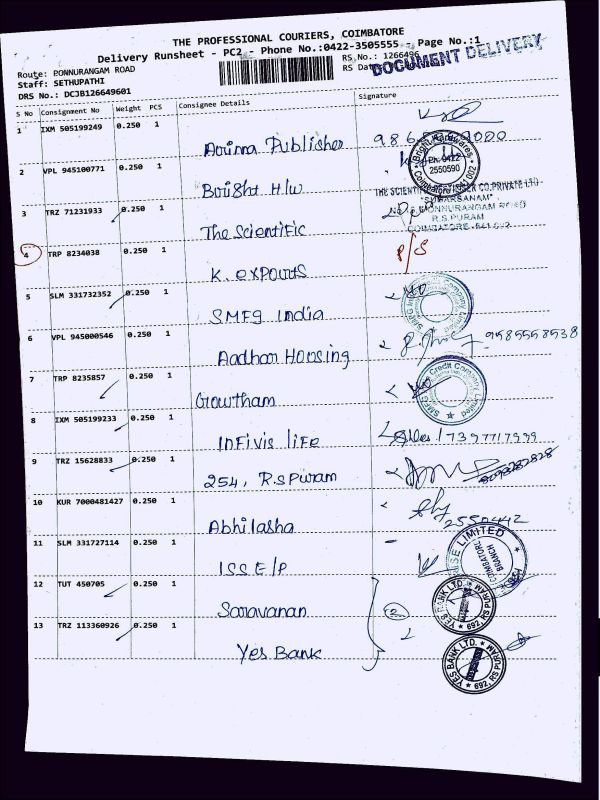 THE PROFESSIONAL COURIERS, COIMBATORE
Delivery Runsheet - PC2 - Phone No.:0422-3505555 - Page No.:1
Route: PONNURANGAM ROAD
RS No.: 1266496
Staff: SETHUPATHI
RS Dat
DOCUMENT DELIVERY
DRS No.: DCJB126649601
S No Consignment No Weight PCS Consignee Details Signature
1 IXM 505199249 0.250 1
Aruna Publisher
2 VPL 945100771 0.250 1
Bright H/w
Ph: 0422
2550590
3 TRZ 71231933 0.250 1
The Scientific
R.S.PURAM
4 TRP 8234038 0.250 1
K. exports
P/S
5 SLM 331732352 0.250 1
SMFG India
6 VPL 945000546 0.250 1
Aadhar Housing
9585558538
7 TRP 8235857 0.250 1
Gowtham
SMFG India Credit Company Limited
8 IXM 505199233 0.250 1
Infivis life
7397717999
9 TRZ 15628833 0.250 1
254, R.S Puram
10 KUR 7000481427 0.250 1
Abhilasha
2550442
11 SLM 331727114 0.250 1
ISS E/P
LIMITED
COIMBATORE
BRANCH
12 TUT 450705 0.250 1
Saravanan
2
YES BANK LTD. ★ 692, RS PURAM
13 TRZ 113360926 0.250 1
Yes Bank
YES BANK LTD. ★ 692, RS PURAM